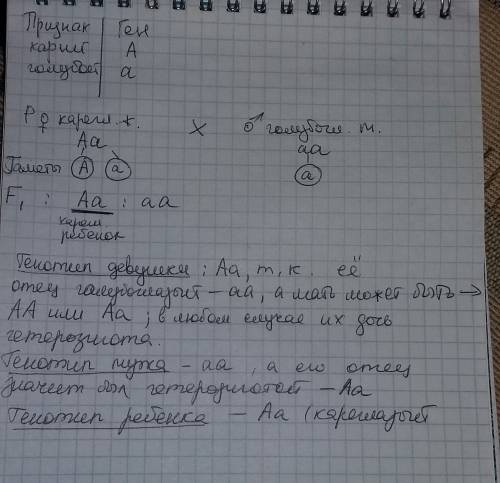 Признак | Ген
карий | A
голубой | a
P ♀ карегл. ж. X ♂ голубогл. м.
Aa aa
Гаметы A a a
F1 : Aa : aa
карегл.
ребенок
Генотип девушки: Aa, т. к. её
отец голубоглазый – aa, а мать может быть →
AA или Aa; в любом случае их дочь
гетерозигота.
Генотип мужа – aa, а его отец
значит был гетерозиготой – Aa
Генотип ребенка – Aa (кареглазый